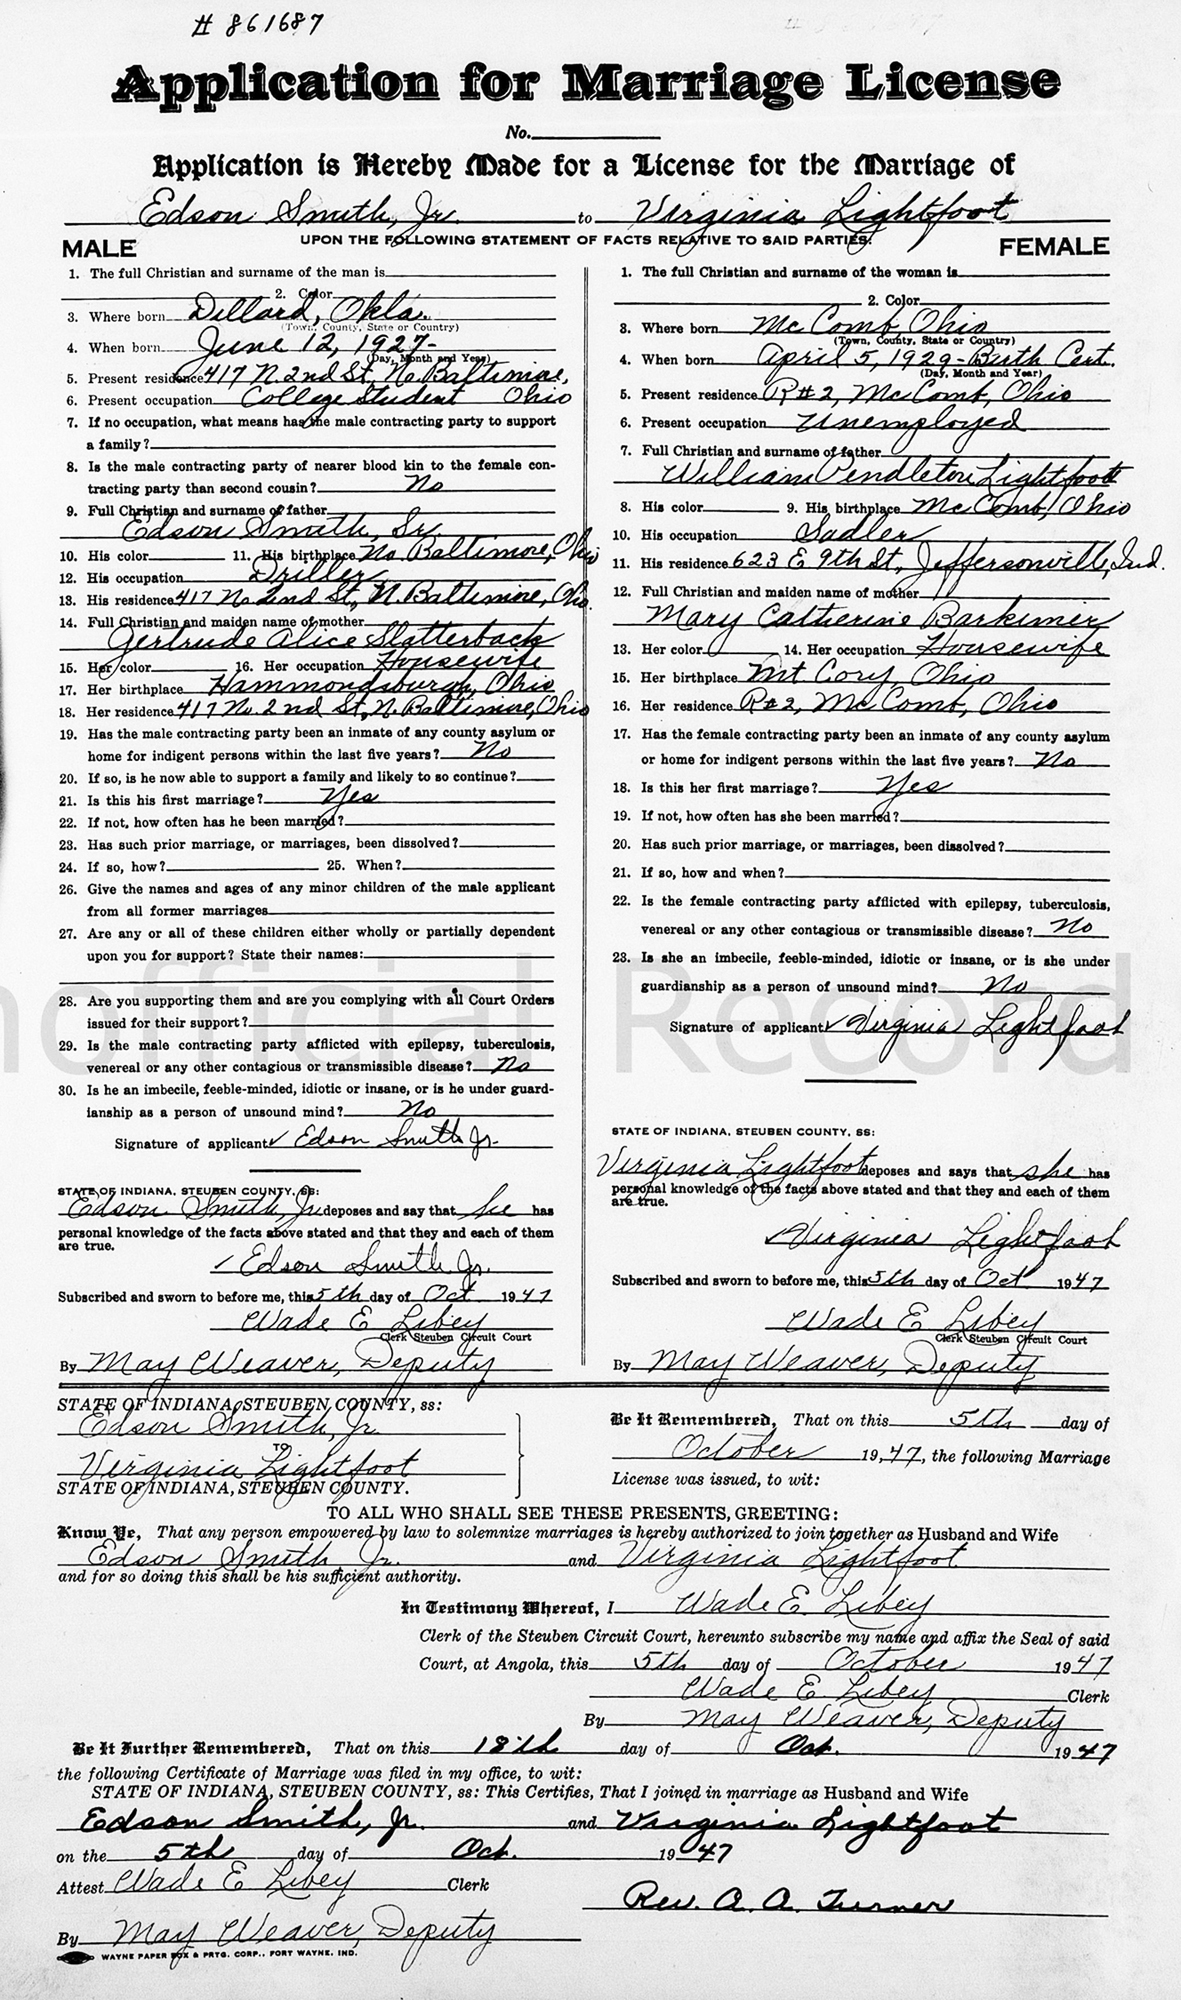 # 861687
Application for Marriage License
No.
Application is Hereby Made for a License for the Marriage of
Edson Smith, Jr. to Virginia Lightfoot
UPON THE FOLLOWING STATEMENT OF FACTS RELATIVE TO SAID PARTIES:
MALE
1. The full Christian and surname of the man is
2. Color
3. Where born Dillard, Okla.
(Town, County, State or Country)
4. When born June 12, 1927-
(Day, Month and Year)
5. Present residence 417 N. 2nd St, No Baltimore,
6. Present occupation College Student Ohio
7. If no occupation, what means has the male contracting party to support
a family?
8. Is the male contracting party of nearer blood kin to the female con-
tracting party than second cousin? No
9. Full Christian and surname of father
Edson Smith, Sr.
10. His color 11. His birthplace No. Baltimore, Ohio
12. His occupation Driller
13. His residence 417 No 2nd St, N. Baltimore, Ohio.
14. Full Christian and maiden name of mother
Gertrude Alice Slatterback
15. Her color 16. Her occupation Housewife
17. Her birthplace Hammondsburgh, Ohio
18. Her residence 417 No. 2nd St, N. Baltimore, Ohio
19. Has the male contracting party been an inmate of any county asylum or
home for indigent persons within the last five years? No
20. If so, is he now able to support a family and likely to so continue?
21. Is this his first marriage? Yes
22. If not, how often has he been married?
23. Has such prior marriage, or marriages, been dissolved?
24. If so, how? 25. When?
26. Give the names and ages of any minor children of the male applicant
from all former marriages
27. Are any or all of these children either wholly or partially dependent
upon you for support? State their names:
28. Are you supporting them and are you complying with all Court Orders
issued for their support?
29. Is the male contracting party afflicted with epilepsy, tuberculosis,
venereal or any other contagious or transmissible disease? No
30. Is he an imbecile, feeble-minded, idiotic or insane, or is he under guard-
ianship as a person of unsound mind? No
Signature of applicant ✓ Edson Smith Jr.
STATE OF INDIANA, STEUBEN COUNTY, SS:
Edson Smith, Jr. deposes and say that he has
personal knowledge of the facts above stated and that they and each of them
are true.
✓ Edson Smith Jr.
Subscribed and sworn to before me, this 5th day of Oct 1947
Wade E Libey
Clerk Steuben Circuit Court
By May Weaver, Deputy
FEMALE
1. The full Christian and surname of the woman is
2. Color
3. Where born Mc Comb, Ohio
(Town, County, State or Country)
4. When born April 5, 1929-Birth Cert.
(Day, Month and Year)
5. Present residence R#2, Mc Comb, Ohio
6. Present occupation Unemployed
7. Full Christian and surname of father
William Pendleton Lightfoot
8. His color 9. His birthplace Mc Comb, Ohio
10. His occupation Sadler
11. His residence 623 E 9th St, Jeffersonville, Ind.
12. Full Christian and maiden name of mother
Mary Catherine Barkimer
13. Her color 14. Her occupation Housewife
15. Her birthplace Mt Cory, Ohio
16. Her residence R#2, Mc Comb, Ohio
17. Has the female contracting party been an inmate of any county asylum
or home for indigent persons within the last five years? No
18. Is this her first marriage? Yes
19. If not, how often has she been married?
20. Has such prior marriage, or marriages, been dissolved?
21. If so, how and when?
22. Is the female contracting party afflicted with epilepsy, tuberculosis,
venereal or any other contagious or transmissible disease? No
23. Is she an imbecile, feeble-minded, idiotic or insane, or is she under
guardianship as a person of unsound mind? No
Signature of applicant ✓ Virginia Lightfoot
STATE OF INDIANA, STEUBEN COUNTY, SS:
Virginia Lightfoot deposes and says that she has
personal knowledge of the facts above stated and that they and each of them
are true.
✓ Virginia Lightfoot
Subscribed and sworn to before me, this 5th day of Oct 1947
Wade E Libey
Clerk Steuben Circuit Court
By May Weaver, Deputy
STATE OF INDIANA, STEUBEN COUNTY, ss:
Edson Smith, Jr.
TO
Virginia Lightfoot
STATE OF INDIANA, STEUBEN COUNTY.
Be It Remembered, That on this 5th day of
October 1947, the following Marriage
License was issued, to wit:
TO ALL WHO SHALL SEE THESE PRESENTS, GREETING:
Know Ye, That any person empowered by law to solemnize marriages is hereby authorized to join together as Husband and Wife
Edson Smith, Jr. and Virginia Lightfoot
and for so doing this shall be his sufficient authority.
In Testimony Whereof, I Wade E. Libey
Clerk of the Steuben Circuit Court, hereunto subscribe my name and affix the Seal of said
Court, at Angola, this 5th day of October 1947
Wade E Libey Clerk
By May Weaver, Deputy
Be It Further Remembered, That on this 18th day of Oct. 1947
the following Certificate of Marriage was filed in my office, to wit:
STATE OF INDIANA, STEUBEN COUNTY, ss: This Certifies, That I joined in marriage as Husband and Wife
Edson Smith, Jr. and Virginia Lightfoot
on the 5th day of Oct. 1947
Attest Wade E Libey Clerk
Rev. A. A. Turner
By May Weaver, Deputy
WAYNE PAPER BOX & PRTG. CORP., FORT WAYNE, IND.
nofficial Record